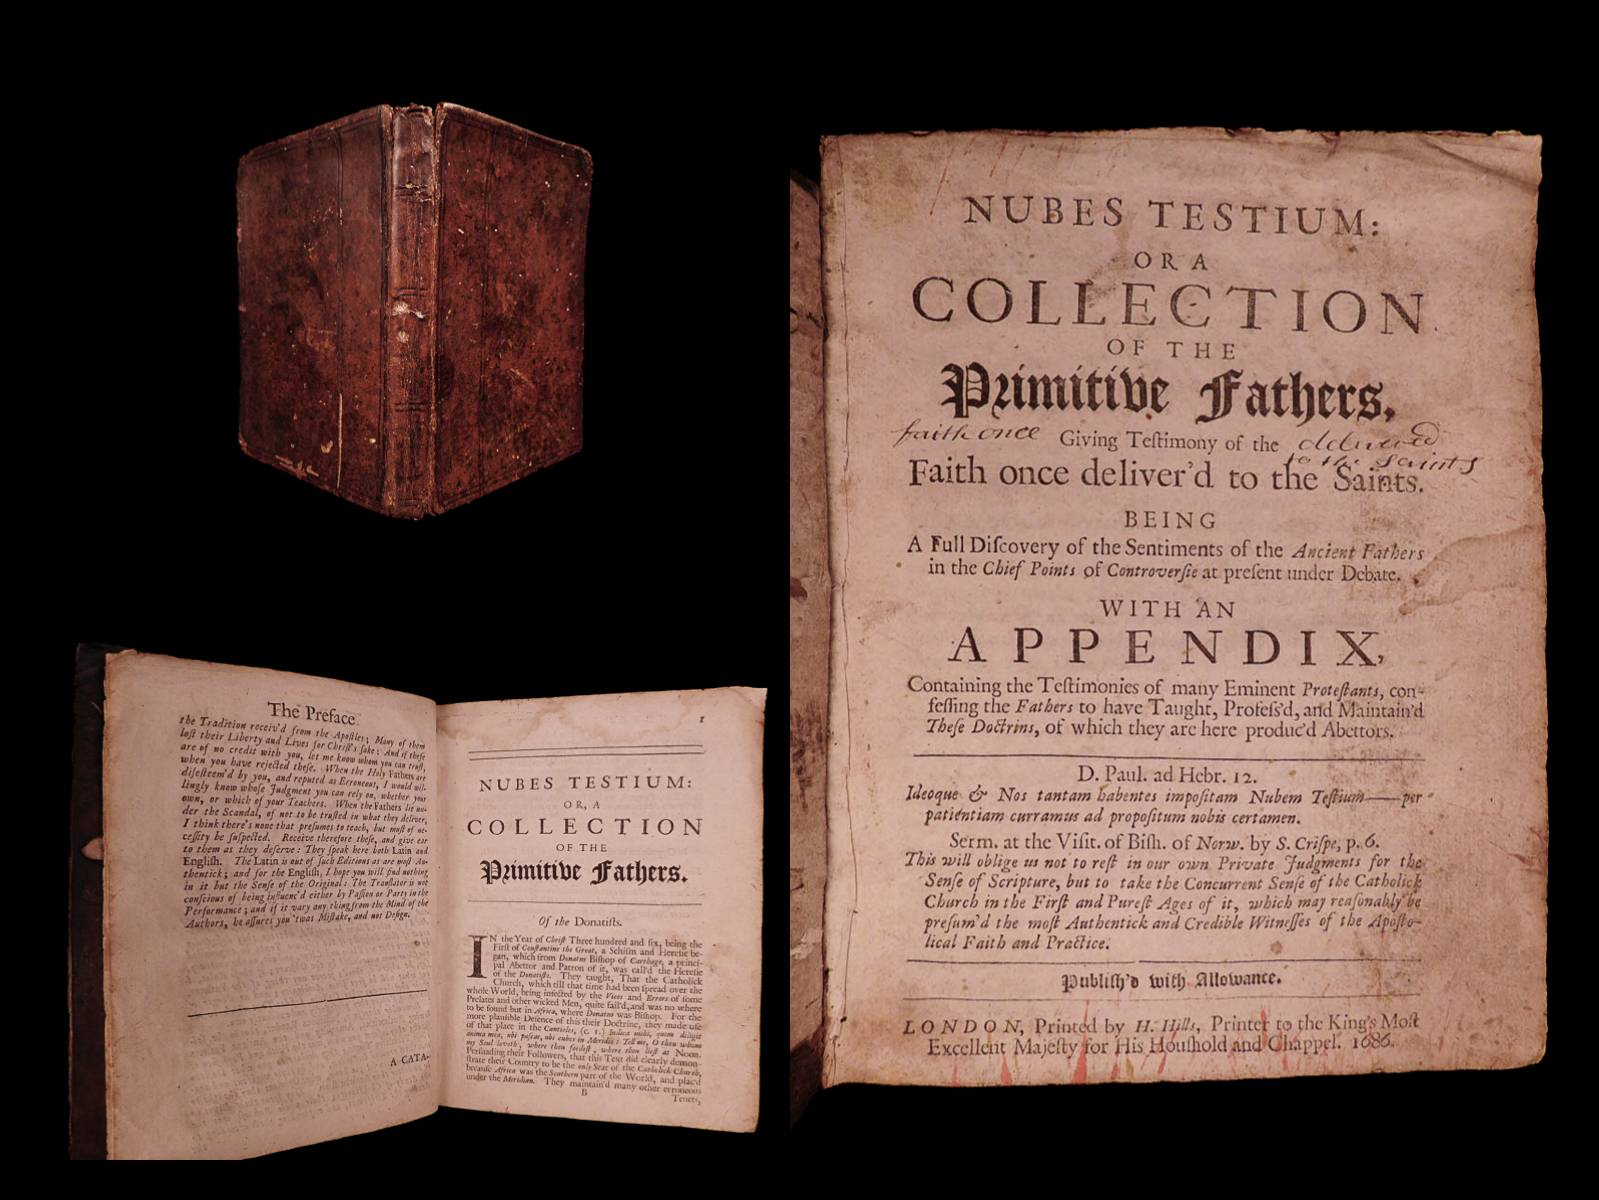 The Preface.
the Tradition receiv'd from the Apostles; Many of them
lost their Liberty and Lives for Christ's sake: And if these
are of no credit with you, let me know whom you can trust,
when you have rejected these. When the Holy Fathers are
disesteem'd by you, and reputed as Erroneous, I would wil-
lingly know whose Judgment you can rely on, whether your
own, or which of your Teachers. When the Fathers lie un-
der the Scandal, of not to be trusted in what they deliver,
I think there's none that presumes to teach, but must of ne-
cessity be suspected. Receive therefore these, and give ear
to them as they deserve: They speak here both Latin and
English. The Latin is out of such Editions as are most Au-
thentick; and for the English, I hope you will find nothing
in it but the Sense of the Original: The Translator is not
conscious of being influenc'd either by Passion or Party in the
Performance; and if it vary any thing from the Mind of the
Authors, he assures you 'twas Mistake, and not Design.
A CATA-
1
NUBES TESTIUM:
OR, A
COLLECTION
OF THE
Primitive Fathers.
Of the Donatists.
IN the Year of Christ Three hundred and six, being the
First of Constantine the Great, a Schism and Heresie be-
gan, which from Donatus Bishop of Carthage, a princi-
pal Abettor and Patron of it, was call'd the Heresie
of the Donatists. They taught, That the Catholick
Church, which till that time had been spread over the
whole World, being infected by the Vices and Errors of some
Prelates and other wicked Men, quite fail'd, and was no where
to be found but in Africa, where Donatus was Bishop. For the
more plausible Defence of this their Doctrine, they made use
of that place in the Canticles, (c. 1.) Indica mihi, quem diligit
anima mea, ubi pascas, ubi cubes in Meridie: Tell me, O thou whom
my Soul loveth, where thou feedest, where thou liest at Noon.
Persuading their Followers, that this Text did clearly demon-
strate their Country to be the only Seat of the Catholick Church,
because Africa was the Southern part of the World, and plac'd
under the Meridian. They maintain'd many other erroneous
B
Tenets,
NUBES TESTIUM:
OR A
COLLECTION
OF THE
Primitive Fathers,
faith once Giving Testimony of the delivered
to the saints
Faith once deliver'd to the Saints.
BEING
A Full Discovery of the Sentiments of the Ancient Fathers
in the Chief Points of Controversie at present under Debate.
WITH AN
APPENDIX,
Containing the Testimonies of many Eminent Protestants, con-
fessing the Fathers to have Taught, Profess'd, and Maintain'd
These Doctrins, of which they are here produc'd Abettors.
D. Paul. ad Hebr. 12.
Ideoque & Nos tantam habentes impositam Nubem Testium——per
patientiam curramus ad propositum nobis certamen.
Serm. at the Visit. of Bish. of Norw. by S. Crispe, p. 6.
This will oblige us not to rest in our own Private Judgments for the
Sense of Scripture, but to take the Concurrent Sense of the Catholick
Church in the First and Purest Ages of it, which may reasonably be
presum'd the most Authentick and Credible Witnesses of the Aposto-
lical Faith and Practice.
Publish'd with Allowance.
LONDON, Printed by H. Hills, Printer to the King's Most
Excellent Majesty for His Houshold and Chappel. 1686.